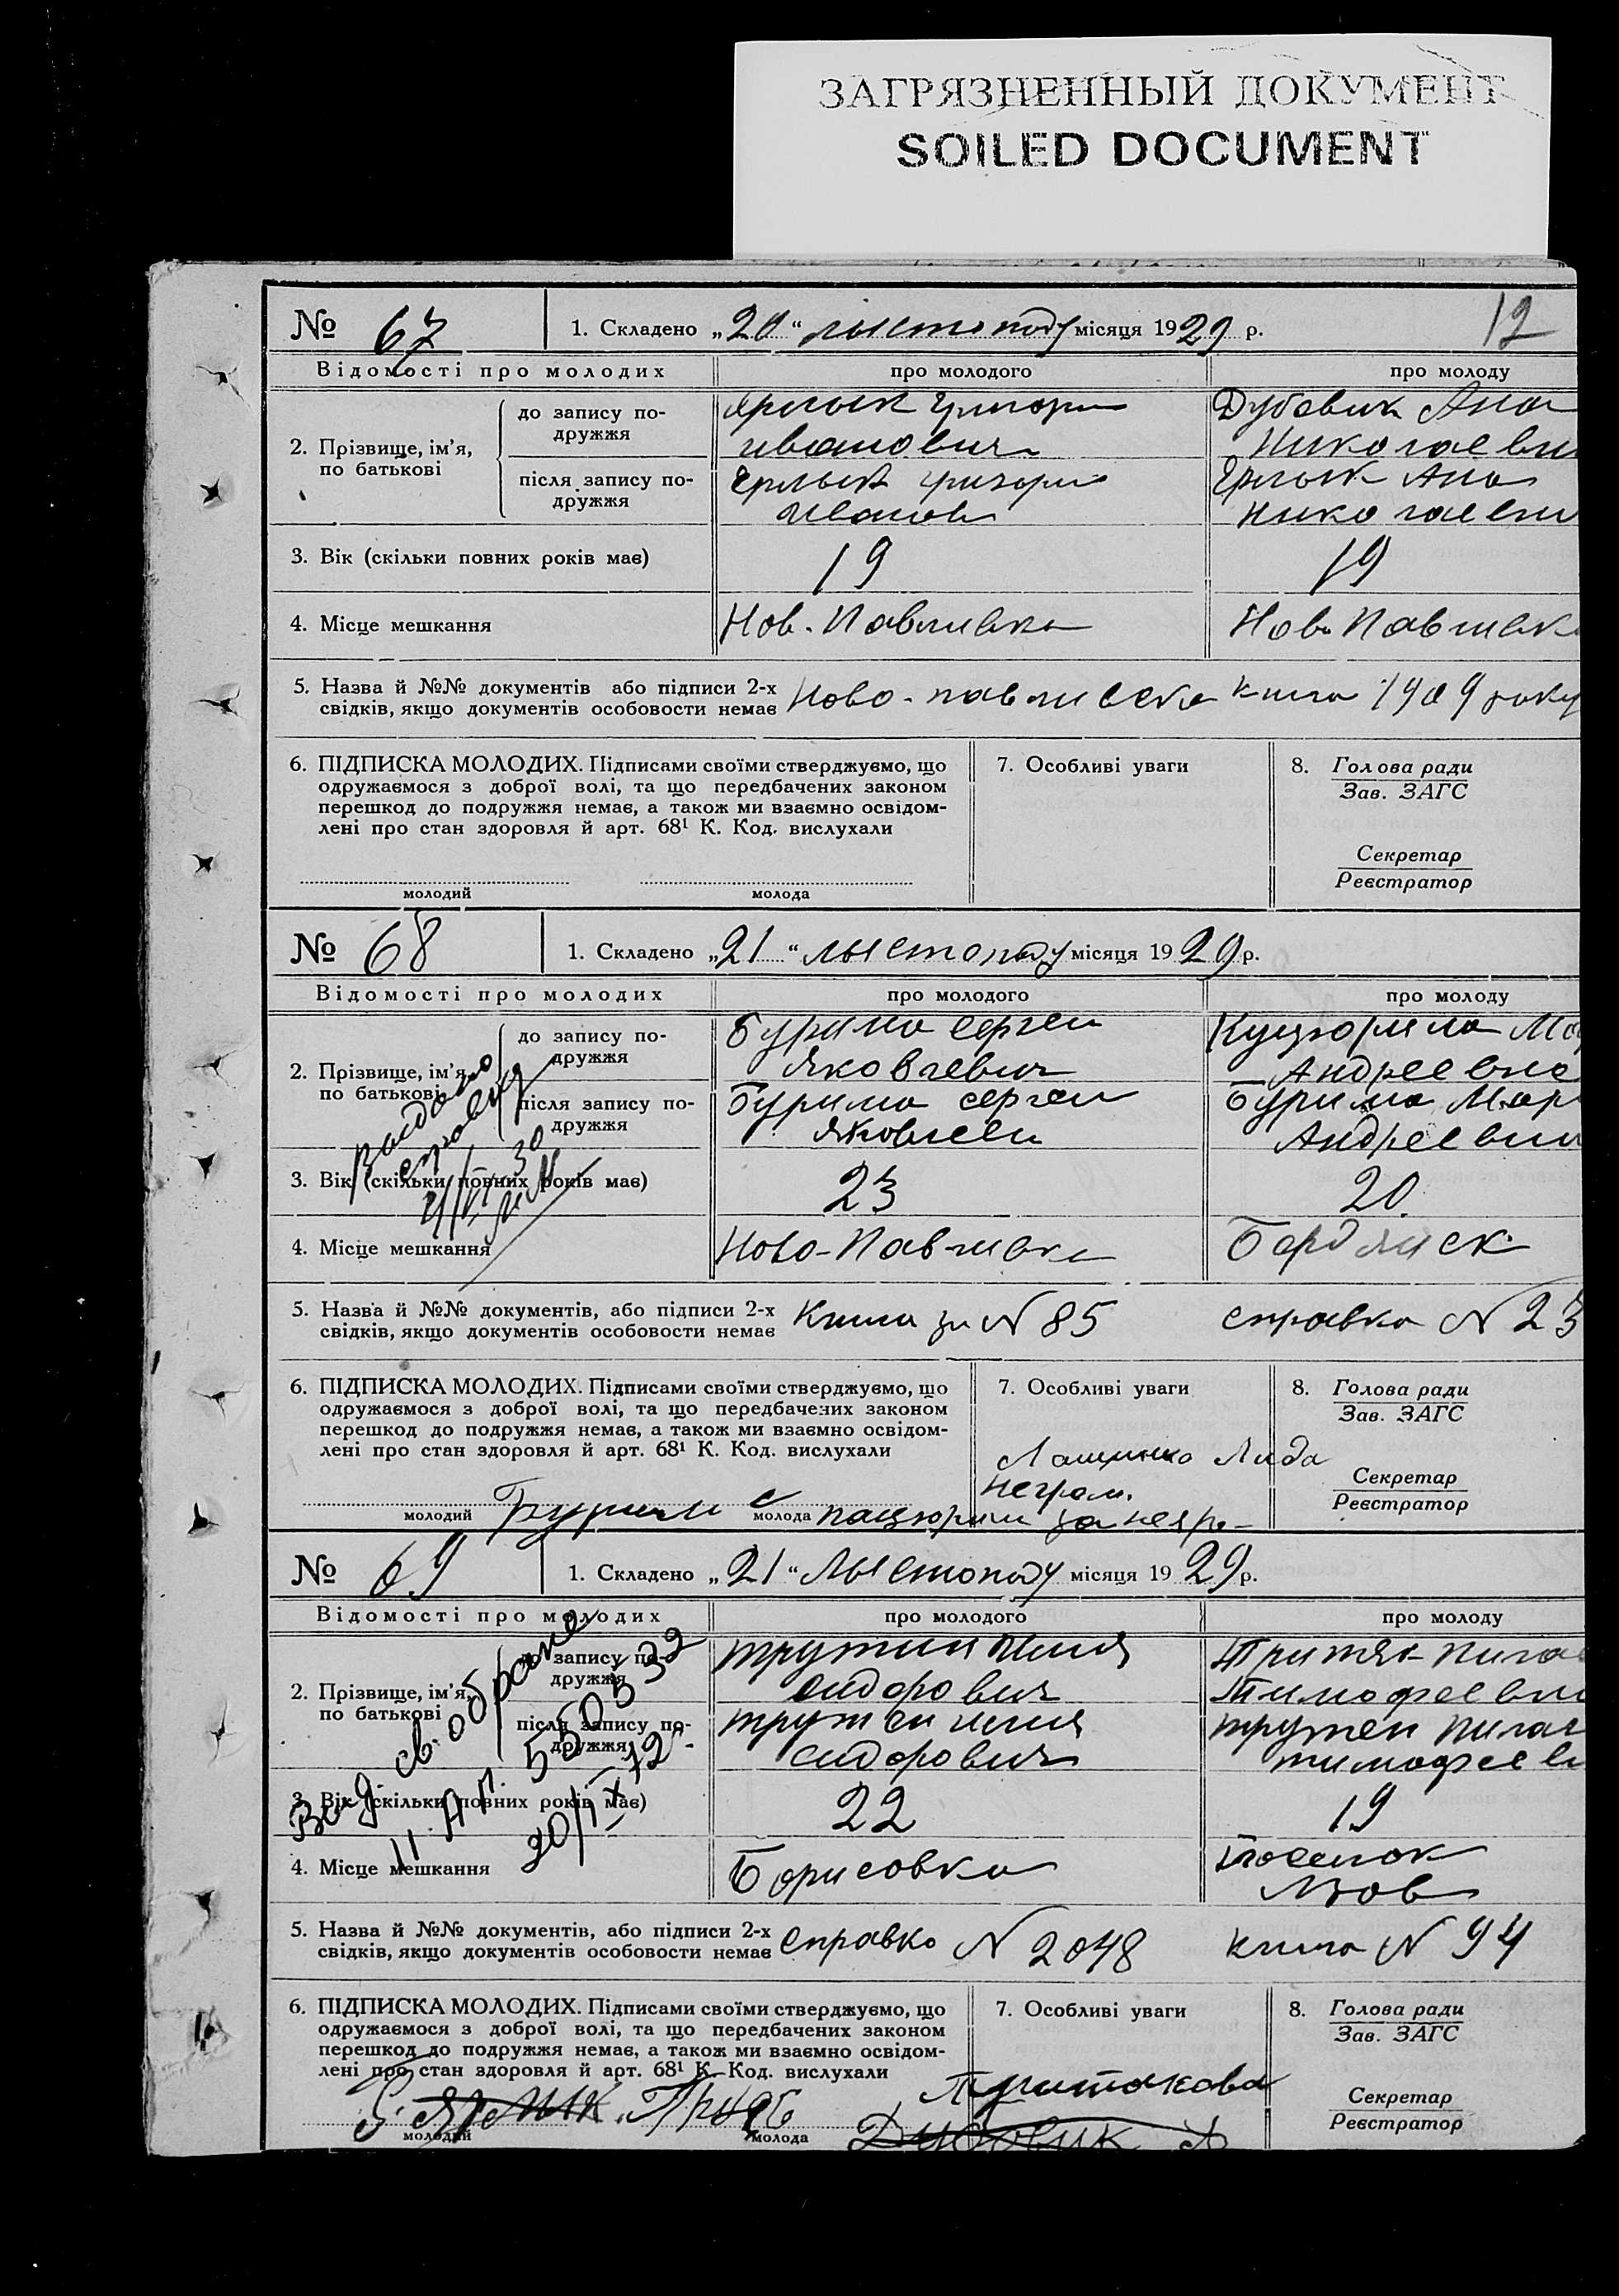 ЗАГРЯЗНЕННЫЙ ДОКУМЕНТ
SOILED DOCUMENT
12
№ 67 1. Складено „20“ лыстопаду місяця 1929 р.
Відомості про молодих про молодого про молоду
2. Прізвище, ім'я, по батькові
до запису по-
дружжя
Ярлык Григори
Иванович
Дубовик Ана
Николаевн
після запису по-
дружжя
Ерлык Григори
Иванов
Ерлык Ана
Николаевн
3. Вік (скільки повних років має) 19 19
4. Місце мешкання Нов. Павливка Нов. Павливк
5. Назва й №№ документів або підписи 2-х
свідків, якщо документів особовости немає Ново-павливска книга 1909 року
6. ПІДПИСКА МОЛОДИХ. Підписами своїми стверджуємо, що
одружаємося з доброї волі, та що передбачених законом
перешкод до подружжя немає, а також ми взаємно освідом-
лені про стан здоровля й арт. 68¹ К. Код. вислухали
молодий молода
7. Особливі уваги
8. Голова ради
Зав. ЗАГС
Секретар
Реєстратор
№ 68 1. Складено „21“ лыстопаду місяця 1929 р.
Відомості про молодих про молодого про молоду
2. Прізвище, ім'я, по батькові
до запису по-
дружжя
Бурима Серген
Яковлевич
Мар
Андреевна
після запису по-
дружжя
Бурима Серген
Яковлеви
Бурима Мар
Андреевн
справка
3. Вік (скільки повних років має) 23 20
4. Місце мешкання Ново-Павливка Бердянск
5. Назва й №№ документів, або підписи 2-х
свідків, якщо документів особовости немає Книга за N 85 справка N 23
6. ПІДПИСКА МОЛОДИХ. Підписами своїми стверджуємо, що
одружаємося з доброї волі, та що передбачених законом
перешкод до подружжя немає, а також ми взаємно освідом-
лені про стан здоровля й арт. 68¹ К. Код. вислухали
молодий Бурима С молода за негр-
7. Особливі уваги
Лида
неграм.
8. Голова ради
Зав. ЗАГС
Секретар
Реєстратор
№ 69 1. Складено „21“ Лыстопаду місяця 1929 р.
Відомості про молодих про молодого про молоду
2. Прізвище, ім'я, по батькові
до запису по-
дружжя
Сидорович
Тимофеевн
після запису по-
дружжя
Сидорович
Тимофеев
550532
30/IX 72
3. Вік (скільки повних років має) 22 19
4. Місце мешкання Борисовка Поселок
Азов
5. Назва й №№ документів, або підписи 2-х
свідків, якщо документів особовости немає Справка N 2048 книга N 94
6. ПІДПИСКА МОЛОДИХ. Підписами своїми стверджуємо, що
одружаємося з доброї волі, та що передбачених законом
перешкод до подружжя немає, а також ми взаємно освідом-
лені про стан здоровля й арт. 68¹ К. Код. вислухали
молодий молода Дубовик А
7. Особливі уваги
8. Голова ради
Зав. ЗАГС
Секретар
Реєстратор